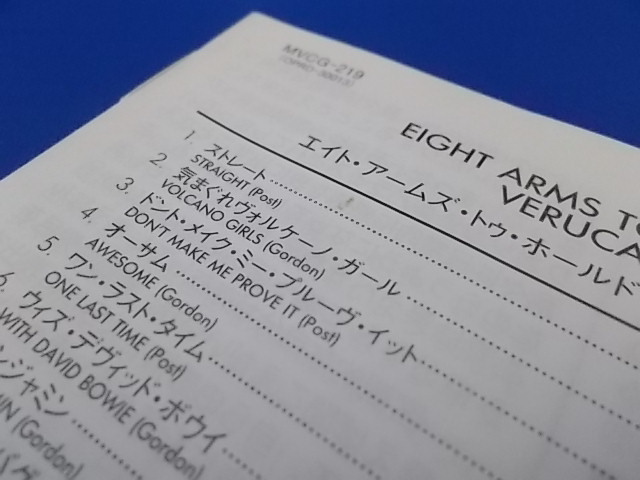 MVCG-219
EIGHT ARMS TO
VERUCA
エイト・アームズ・トゥ・ホールド
1. ストレート
STRAIGHT (Post)
2. 気まぐれヴォルケーノ・ガール
VOLCANO GIRLS (Gordon)
3. ドント・メイク・ミー・プルーヴ・イット
DON'T MAKE ME PROVE IT (Post)
4. オーサム
AWESOME (Gordon)
5. ワン・ラスト・タイム
ONE LAST TIME (Post)
6. ウィズ・デヴィッド・ボウイ
WITH DAVID BOWIE (Gordon)
ンジャミン
(Gordon)